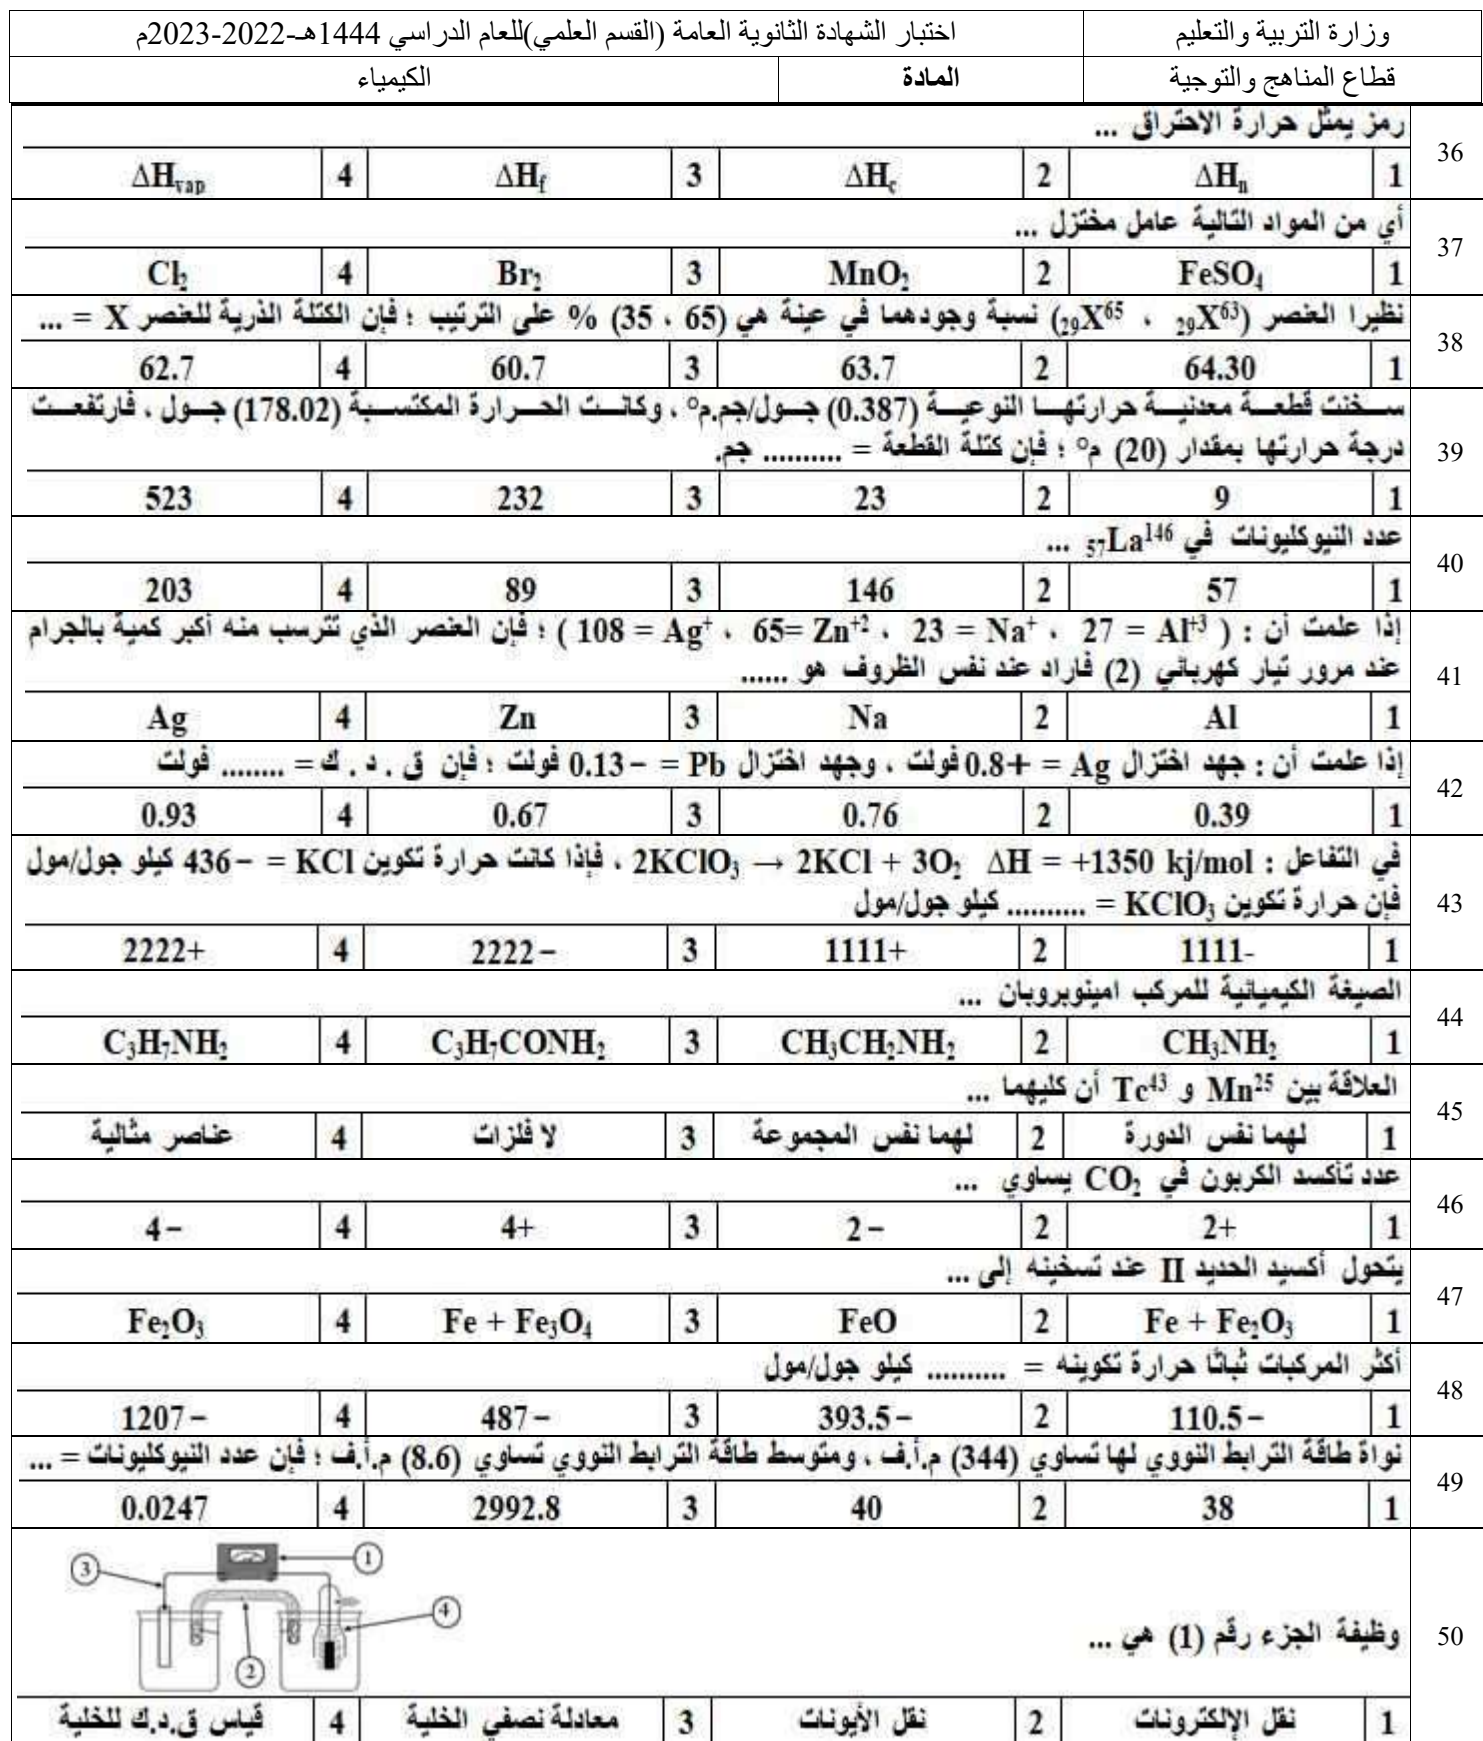 وزارة التربية والتعليم اختبار الشهادة الثانوية العامة (القسم العلمي)للعام الدراسي 1444هـ-2022-2023م
قطاع المناهج والتوجية المادة الكيمياء
36 رمز يمثل حرارة الاحتراق ...
1 ΔHₙ 2 ΔH꜀ 3 ΔHf 4 ΔHvap
37 أي من المواد التالية عامل مختزل ...
1 FeSO₄ 2 MnO₂ 3 Br₂ 4 Cl₂
38 نظيرا العنصر (₂₉X⁶³ ، ₂₉X⁶⁵) نسبة وجودهما في عينة هي (65 ، 35) % على الترتيب ؛ فإن الكتلة الذرية للعنصر X = ...
1 64.30 2 63.7 3 60.7 4 62.7
سخنت قطعة معدنية حرارتها النوعية (0.387) جول/جم.م° ، وكانت الحرارة المكتسبة (178.02) جول ، فارتفعت
39 درجة حرارتها بمقدار (20) م° ؛ فإن كتلة القطعة = .......... جم.
1 9 2 23 3 232 4 523
40 عدد النيوكليونات في ₅₇La¹⁴⁶ ...
1 57 2 146 3 89 4 203
إذا علمت أن : ( Al⁺³ = 27 ، Na⁺ = 23 ، Zn⁺² =65 ، Ag⁺ = 108 ) ؛ فإن العنصر الذي تترسب منه أكبر كمية بالجرام
41 عند مرور تيار كهربائي (2) فاراد عند نفس الظروف هو ......
1 Al 2 Na 3 Zn 4 Ag
42 إذا علمت أن : جهد اختزال Ag = +0.8 فولت ، وجهد اختزال Pb = −0.13 فولت ؛ فإن ق . د . ك = ........ فولت
1 0.39 2 0.76 3 0.67 4 0.93
في التفاعل : 2KClO₃ → 2KCl + 3O₂ ΔH = +1350 kj/mol ، فإذا كانت حرارة تكوين KCl = −436 كيلو جول/مول
43 فإن حرارة تكوين KClO₃ = .......... كيلو جول/مول
1 -1111 2 +1111 3 −2222 4 +2222
44 الصيغة الكيميائية للمركب امينوبروبان ...
1 CH₃NH₂ 2 CH₃CH₂NH₂ 3 C₃H₇CONH₂ 4 C₃H₇NH₂
45 العلاقة بين Mn²⁵ و Tc⁴³ أن كليهما ...
1 لهما نفس الدورة 2 لهما نفس المجموعة 3 لا فلزات 4 عناصر مثالية
46 عدد تأكسد الكربون في CO₂ يساوي ...
1 +2 2 −2 3 +4 4 −4
47 يتحول أكسيد الحديد II عند تسخينه إلى ...
1 Fe + Fe₂O₃ 2 FeO 3 Fe + Fe₃O₄ 4 Fe₂O₃
48 أكثر المركبات ثباتًا حرارة تكوينه = .......... كيلو جول/مول
1 −110.5 2 −393.5 3 −487 4 −1207
49 نواة طاقة الترابط النووي لها تساوي (344) م.أ.ف ، ومتوسط طاقة الترابط النووي تساوي (8.6) م.أ.ف ؛ فإن عدد النيوكليونات = ...
1 38 2 40 3 2992.8 4 0.0247
50 وظيفة الجزء رقم (1) هي ...
1
3
4
2
1 نقل الإلكترونات 2 نقل الأيونات 3 معادلة نصفي الخلية 4 قياس ق.د.ك للخلية